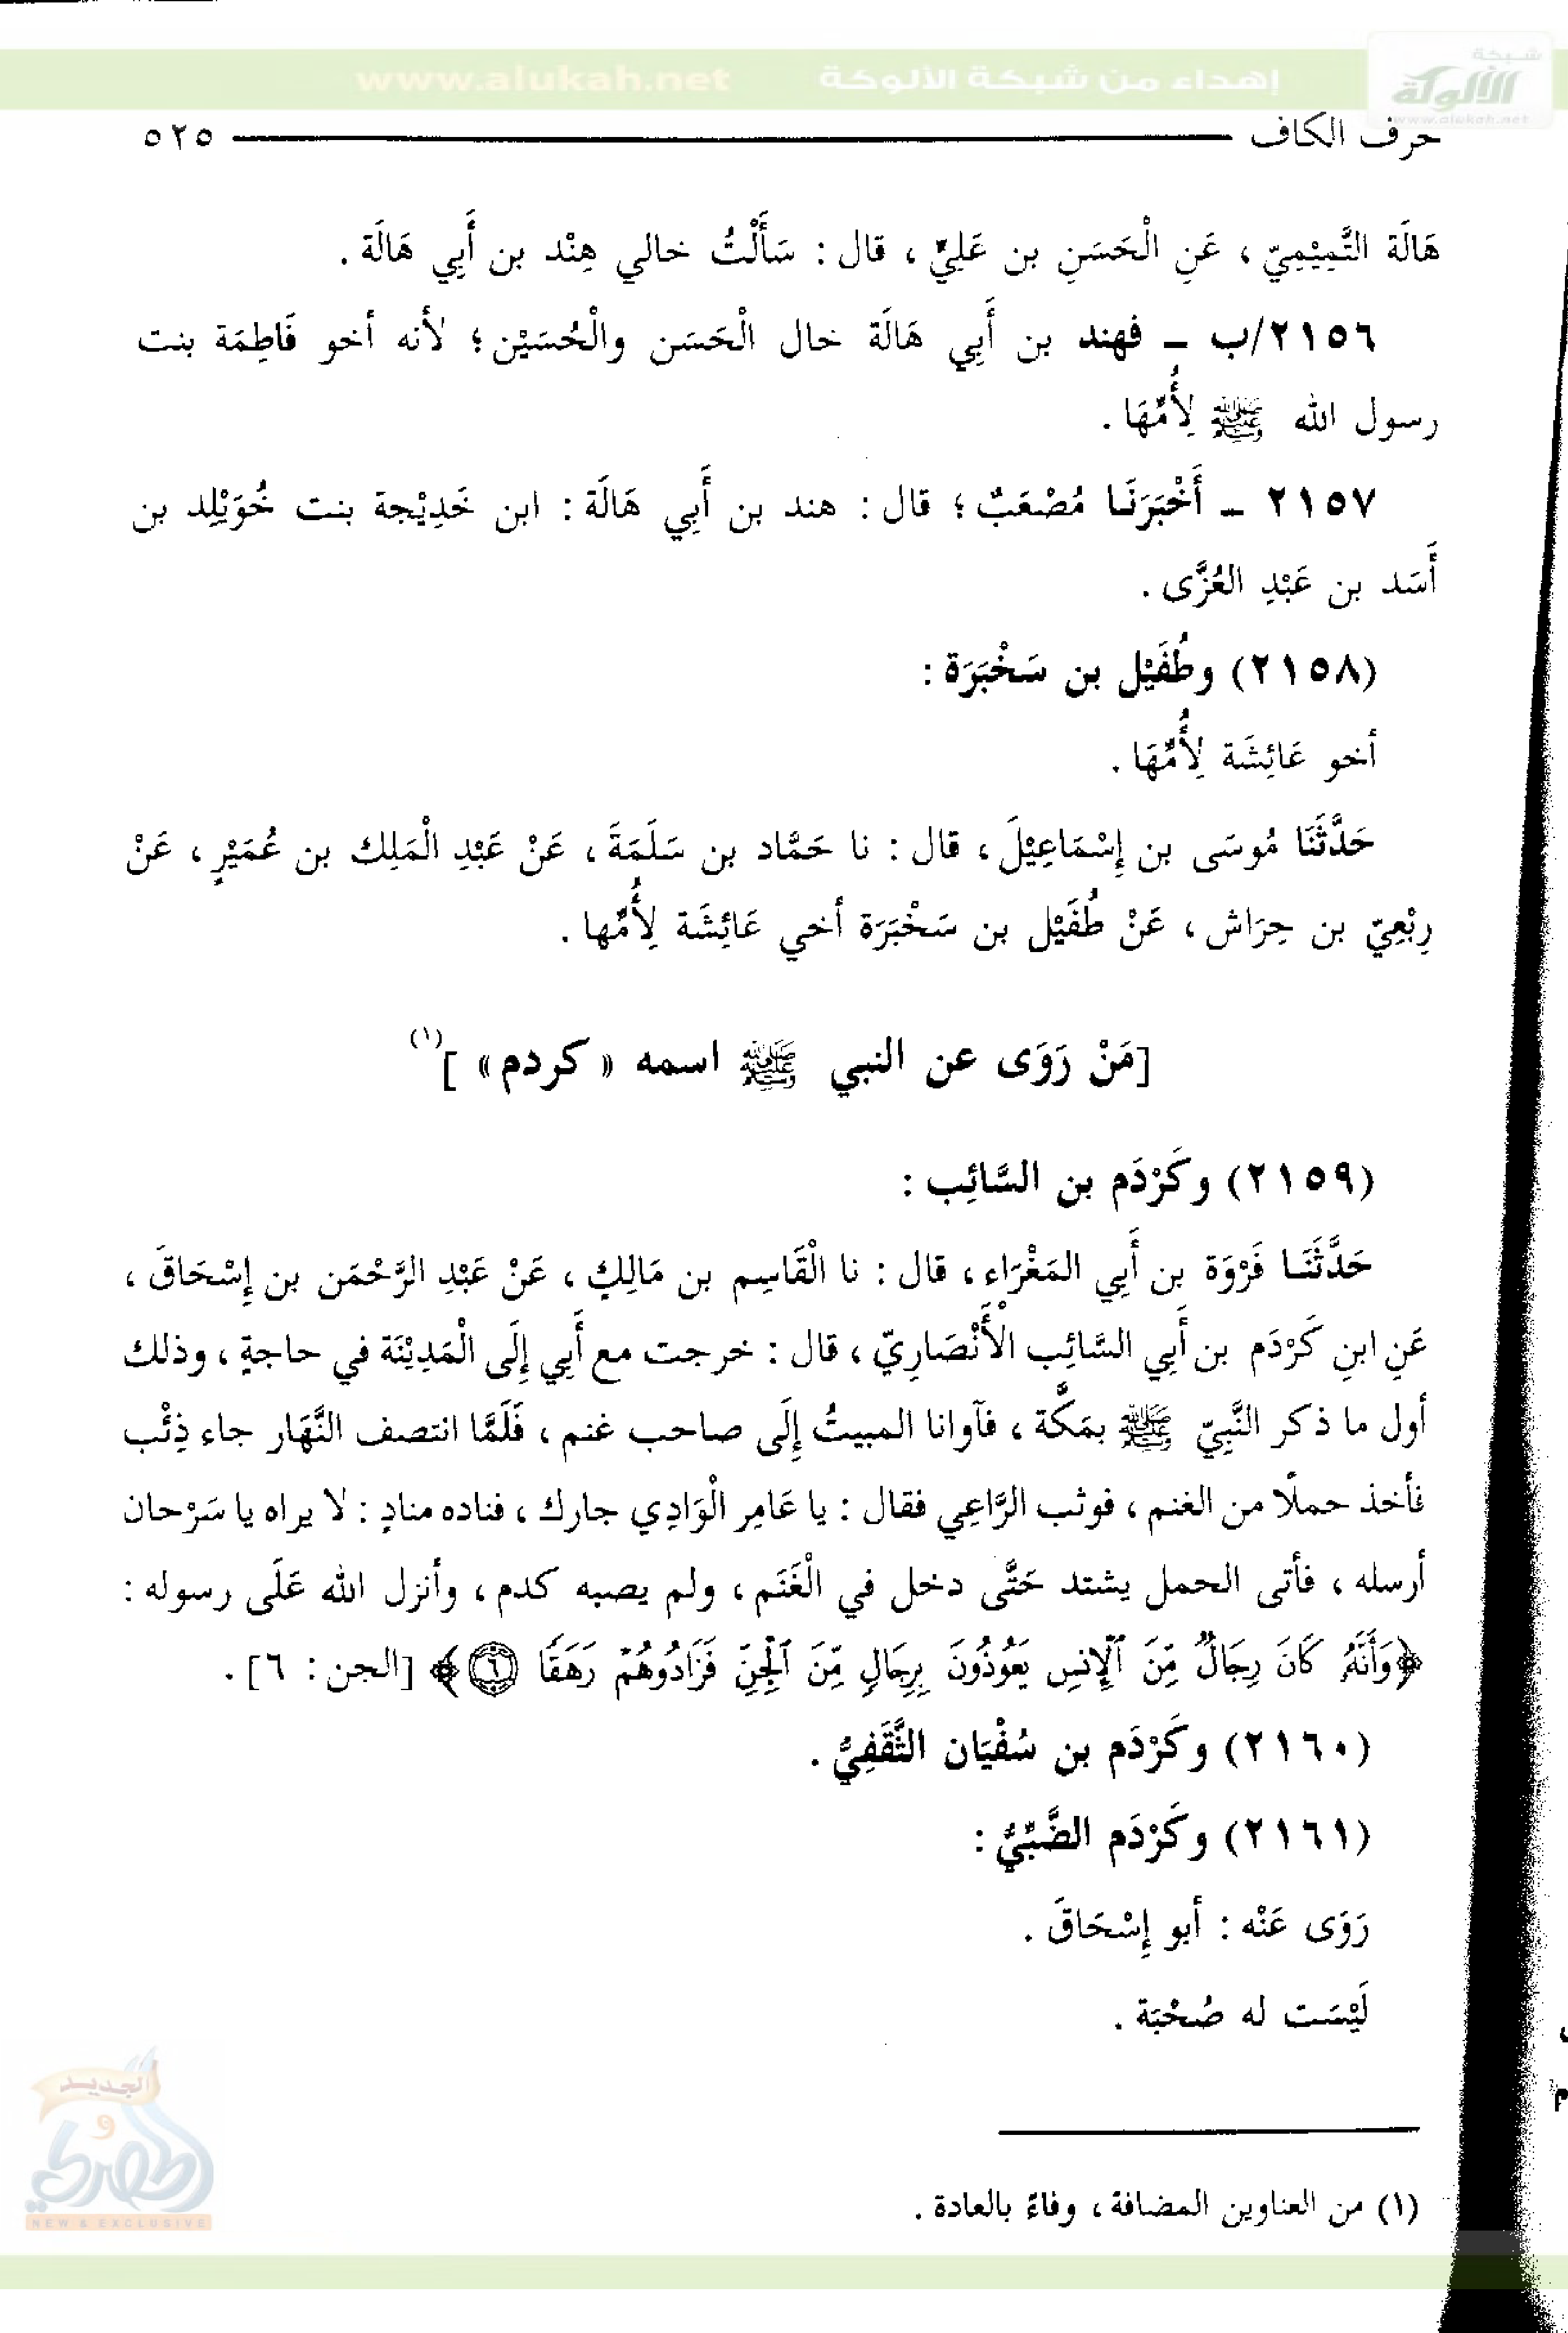 شبكة
الألوكة
www.alukah.net
إهداء من شبكة الألوكة www.alukah.net
حرف الكاف ٥٢٥
هَالَة التَّمِيْمِيّ ، عَنِ الْحَسَنِ بن عَلِيٍّ ، قال : سَأَلْتُ خالي هِنْد بن أَبِي هَالَة .
٢١٥٦/ب ـ فهند بن أَبِي هَالَة خال الْحَسَن والْحُسَيْن ؛ لأنه أخو فَاطِمَة بنت
رسول الله ﷺ لِأُمِّهَا .
٢١٥٧ ـ أَخْبَرَنَا مُصْعَبٌ ؛ قال : هند بن أَبِي هَالَة : ابن خَدِيْجة بنت خُوَيْلِد بن
أَسَد بن عَبْدِ العُزَّى .
(٢١٥٨) وطُفَيْل بن سَخْبَرَة :
أخو عَائِشَة لِأُمِّهَا .
حَدَّثَنَا مُوسَى بن إِسْمَاعِيْلَ ، قال : نا حَمَّاد بن سَلَمَةَ ، عَنْ عَبْدِ الْمَلِك بن عُمَيْرٍ ، عَنْ
رِبْعِيّ بن حِرَاش ، عَنْ طُفَيْل بن سَخْبَرَة أخي عَائِشَة لِأُمِّها .
[مَنْ رَوَى عن النبي ﷺ اسمه « كردم » ](١)
(٢١٥٩) وكَرْدَم بن السَّائِب :
حَدَّثَنَا فَرْوَة بن أَبِي المَغْرَاءِ ، قال : نا الْقَاسِم بن مَالِكٍ ، عَنْ عَبْدِ الرَّحْمَن بن إِسْحَاقَ ،
عَنِ ابنِ كَرْدَم بن أَبِي السَّائِب الْأَنْصَارِيّ ، قال : خرجت مع أَبِي إِلَى الْمَدِيْنَة في حاجةٍ ، وذلك
أول ما ذكر النَّبِيّ ﷺ بمَكَّة ، فآوانا المبيتُ إِلَى صاحب غنم ، فَلَمَّا انتصف النَّهَار جاء ذِئْب
فأخذ حملًا من الغنم ، فوثب الرَّاعِي فقال : يا عَامِر الْوَادِي جارك ، فناده منادٍ : لا يراه يا سَرْحان
أرسله ، فأتى الحمل يشتد حَتَّى دخل في الْغَنَم ، ولم يصبه كدم ، وأنزل الله عَلَى رسوله :
﴿وَأَنَّهُۥ كَانَ رِجَالٌ مِّنَ ٱلْإِنسِ يَعُوذُونَ بِرِجَالٍ مِّنَ ٱلْجِنِّ فَزَادُوهُمْ رَهَقًا ٦﴾ [الجن : ٦] .
(٢١٦٠) وكَرْدَم بن سُفْيَان الثَّقَفِيُّ .
(٢١٦١) وكَرْدَم الضَّبِّيُّ :
رَوَى عَنْه : أبو إِسْحَاقَ .
لَيْسَت له صُحْبَة .
الجديد
و
الحصري
NEW & EXCLUSIVE
(١) من العناوين المضافة ، وفاءً بالعادة .